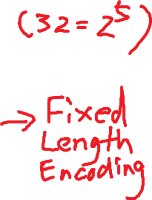 (32=2^5)
→ Fixed
Length
Encoding